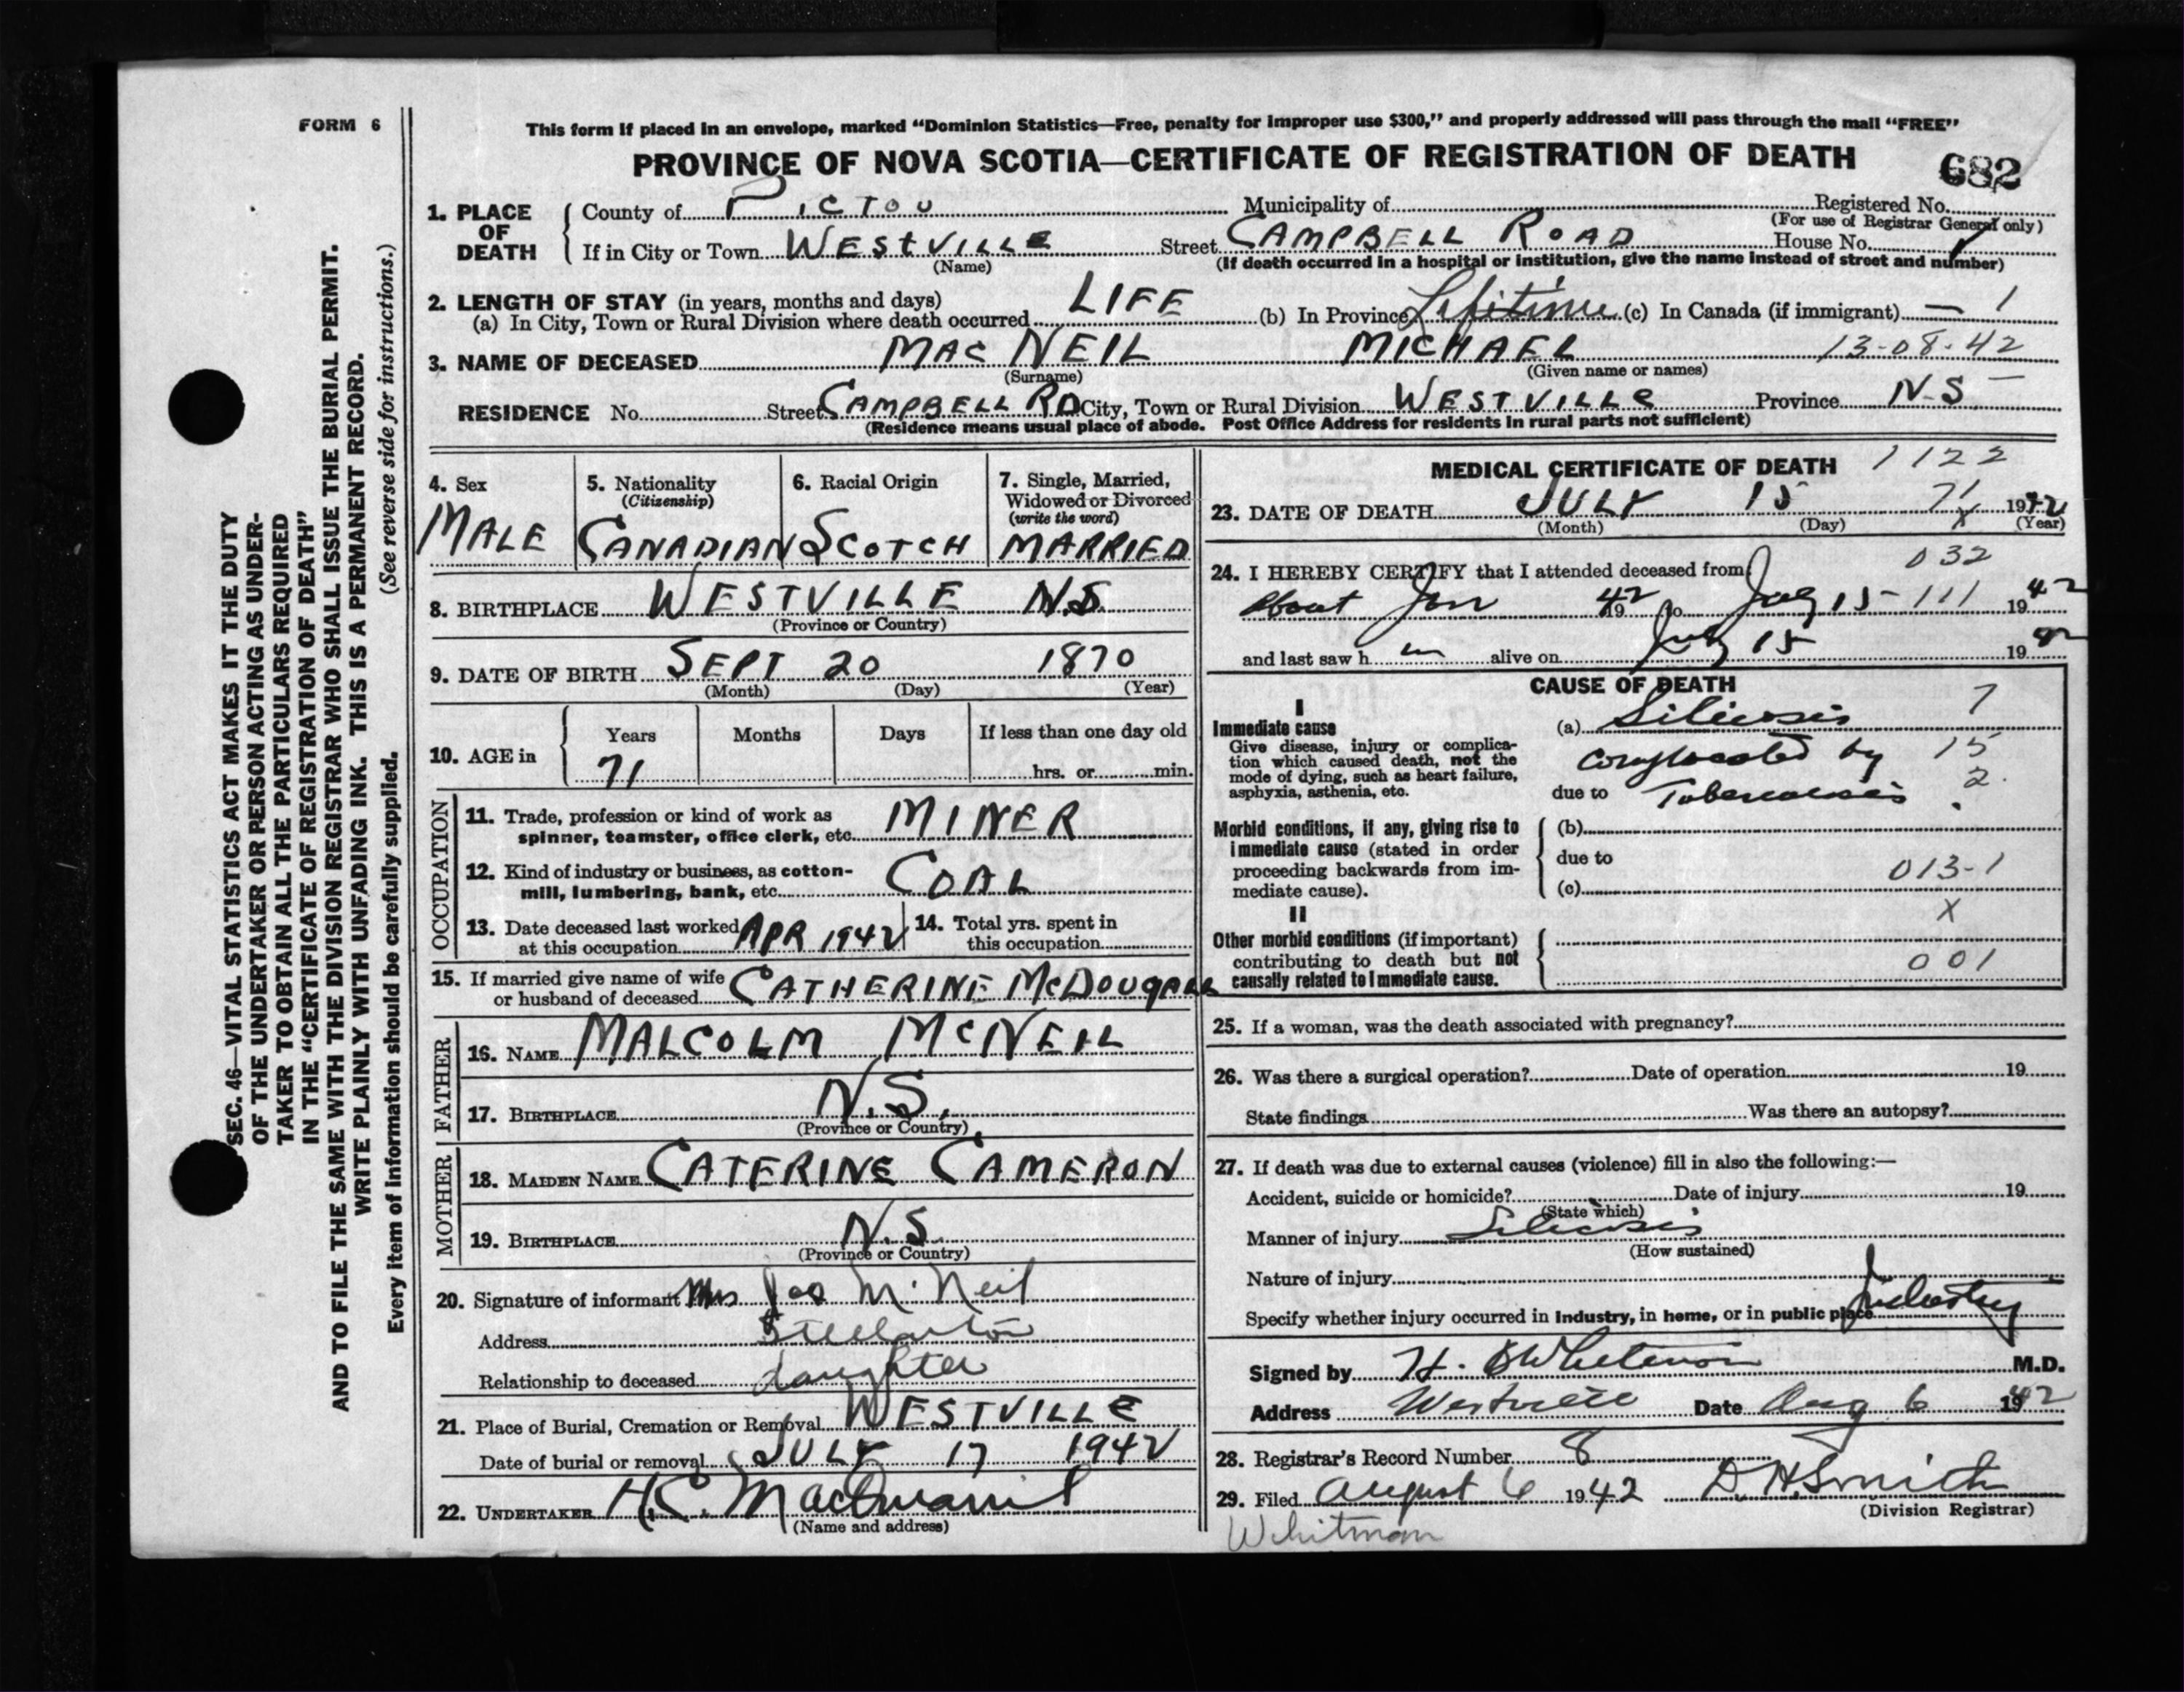 FORM 6
SEC. 46—VITAL STATISTICS ACT MAKES IT THE DUTY
OF THE UNDERTAKER OR PERSON ACTING AS UNDER-
TAKER TO OBTAIN ALL THE PARTICULARS REQUIRED
IN THE "CERTIFICATE OF REGISTRATION OF DEATH"
AND TO FILE THE SAME WITH THE DIVISION REGISTRAR WHO SHALL ISSUE THE BURIAL PERMIT.
WRITE PLAINLY WITH UNFADING INK. THIS IS A PERMANENT RECORD.
(See reverse side for instructions.)
Every item of information should be carefully supplied.
This form if placed in an envelope, marked "Dominion Statistics—Free, penalty for improper use $300," and properly addressed will pass through the mail "FREE"
PROVINCE OF NOVA SCOTIA—CERTIFICATE OF REGISTRATION OF DEATH 682
1. PLACE OF DEATH County of PICTOU Municipality of Registered No.
(For use of Registrar General only)
If in City or Town WESTVILLE Street CAMPBELL ROAD House No.
(Name) (If death occurred in a hospital or institution, give the name instead of street and number)
2. LENGTH OF STAY (in years, months and days)
(a) In City, Town or Rural Division where death occurred LIFE (b) In Province Lifetime (c) In Canada (if immigrant) — 1
3. NAME OF DECEASED MAC NEIL MICHAEL 13-08-42
(Surname) (Given name or names)
RESIDENCE No. Street CAMPBELL RD City, Town or Rural Division WESTVILLE Province N.S
(Residence means usual place of abode. Post Office Address for residents in rural parts not sufficient)
4. Sex
MALE
5. Nationality
(Citizenship)
CANADIAN
6. Racial Origin
SCOTCH
7. Single, Married,
Widowed or Divorced
(write the word)
MARRIED
8. BIRTHPLACE WESTVILLE N.S.
(Province or Country)
9. DATE OF BIRTH SEPT 20 1870
(Month) (Day) (Year)
10. AGE in Years Months Days If less than one day old
71 hrs. or min.
OCCUPATION
11. Trade, profession or kind of work as
spinner, teamster, office clerk, etc. MINER
12. Kind of industry or business, as cotton-
mill, lumbering, bank, etc. COAL
13. Date deceased last worked
at this occupation APR 1942
14. Total yrs. spent in
this occupation
15. If married give name of wife
or husband of deceased CATHERINE McDOUGALL
FATHER
16. NAME MALCOLM McNEIL
17. BIRTHPLACE N.S.
(Province or Country)
MOTHER
18. MAIDEN NAME CATERINE CAMERON
19. BIRTHPLACE N.S.
(Province or Country)
20. Signature of informant Mrs Jas McNeil
Address Stellarton
Relationship to deceased daughter
21. Place of Burial, Cremation or Removal WESTVILLE
Date of burial or removal JULY 17 1942
22. UNDERTAKER H.C.
(Name and address)
MEDICAL CERTIFICATE OF DEATH 1122
23. DATE OF DEATH JULY 15 71 1942
(Month) (Day) (Year)
24. I HEREBY CERTIFY that I attended deceased from 032
about Jan 1942 to July 15 111 1942
and last saw h im alive on July 15 1942
CAUSE OF DEATH
I
Immediate cause
Give disease, injury or complica-
tion which caused death, not the
mode of dying, such as heart failure,
asphyxia, asthenia, etc.
(a) Silicosis 7
complicated by 15
due to Tuberculosis 2.
Morbid conditions, if any, giving rise to
immediate cause (stated in order
proceeding backwards from im-
mediate cause).
(b)
due to
(c) 013-1
II X
Other morbid conditions (if important)
contributing to death but not
causally related to immediate cause.
001
25. If a woman, was the death associated with pregnancy?
26. Was there a surgical operation? Date of operation 19
State findings Was there an autopsy?
27. If death was due to external causes (violence) fill in also the following:—
Accident, suicide or homicide? Date of injury 19
(State which)
Manner of injury Silicosis
(How sustained)
Nature of injury
Specify whether injury occurred in Industry, in home, or in public place Industry
Signed by H. Whitman M.D.
Address Westville Date Aug 6 1942
28. Registrar's Record Number 8
29. Filed August 6 1942 D. H. Smith
(Division Registrar)
Whitman